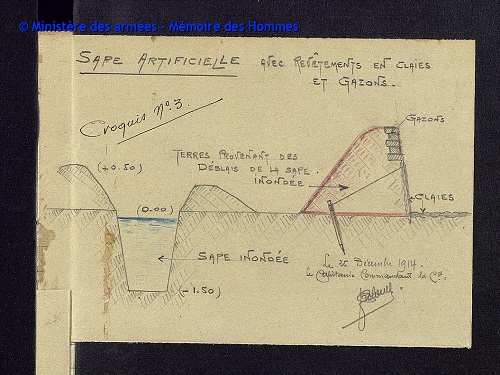 © Ministère des armées - Mémoire des Hommes
SAPE ARTIFICIELLE AVEC REVÊTEMENTS EN CLAIES
ET GAZONS.
Croquis No. 3
GAZONS
TERRES PROVENANT DES
DÉBLAIS DE LA SAPE
INONDÉE
(+0.50)
(0.00)
CLAIES
SAPE INONDÉE
(-1.50)
Le 26 Décembre 1914.
Le Capitaine Commandant la Cie